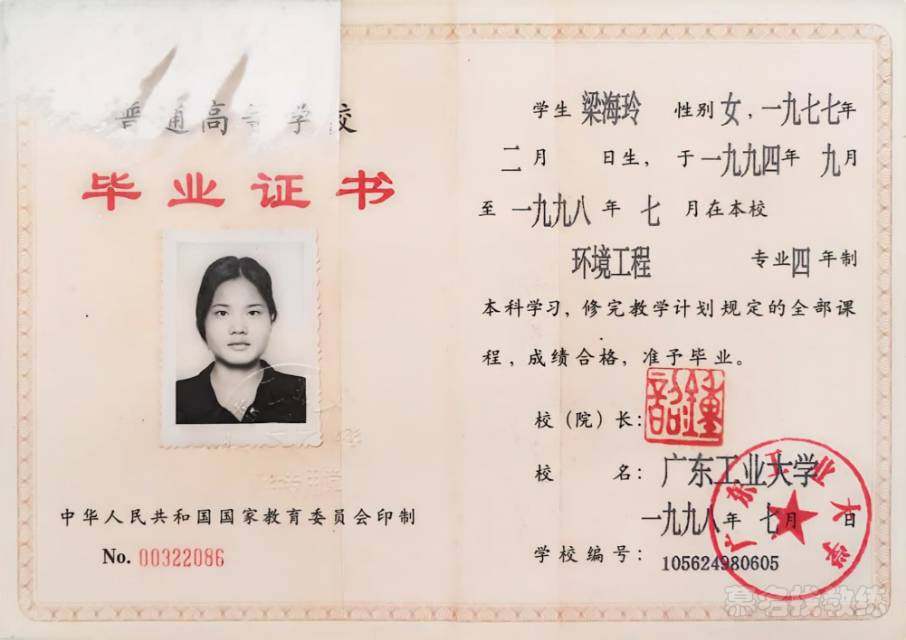 普通高等学校
毕业证书
中华人民共和国国家教育委员会印制
No. 00322086
学生 梁海玲 性别 女，一九七七年
二月 日生，于一九九四年 九月
至 一九九八 年 七 月在本校
环境工程 专业四年制
本科学习，修完教学计划规定的全部课
程，成绩合格，准予毕业。
校（院）长：
校 名：广东工业大学
一九九八年 七月 日
学校编号：105624980605
广东工业大学